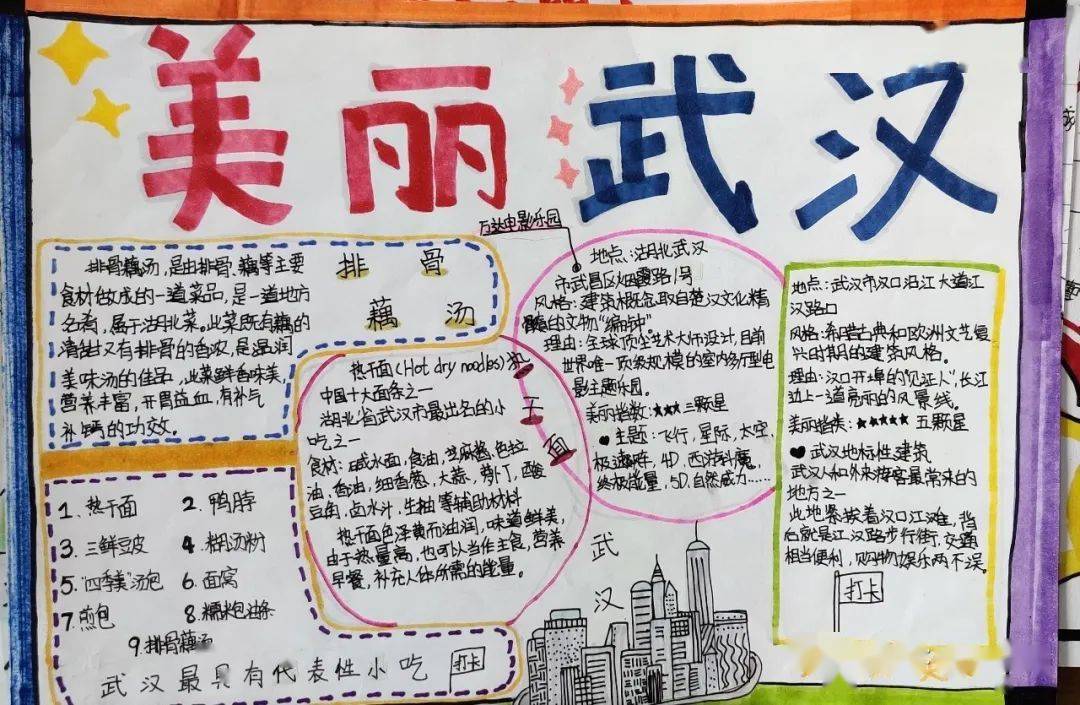 美丽武汉
排骨藕汤
排骨藕汤，是由排骨、藕等主要
食材做成的一道菜品，是一道地方
名肴，属于湖北菜。此菜既有藕的
清甜又有排骨的香浓，是温润
美味汤的佳品，此菜鲜香味美，
营养丰富，开胃益血，有补气
补钙的功效。
1. 热干面
2. 鸭脖
3. 三鲜豆皮
4. 糊汤粉
5. "四季美"汤包
6. 面窝
7. 煎包
8. 糯米包油条
9. 排骨藕汤
武汉最具有代表性小吃
打卡
热干面
热干面(Hot dry noodles)
中国十大面条之一
湖北省武汉市最出名的小
吃之一
食材：碱水面，食油，芝麻酱，色拉
油，香油，细香葱，大蒜，萝卜丁，酸
豆角，卤水汁，生抽等辅助材料
热干面色泽黄而油润，味道鲜美，
由于热量高，也可以当作主食，营养
早餐，补充人体所需的能量。
万达电影乐园
地点：湖北武汉
市武昌区烟霞路1号
风格：建筑概念，取自楚汉文化精
髓的文物"编钟"
理由：全球顶尖艺术大师设计，目前
世界唯一顶级规模的室内多厅型电
影主题乐园。
美丽指数：★★★三颗星
主题：飞行，星际，太空，
终极能量，5D，自然威力……
武汉
地点：武汉市汉口沿江大道江
汉路口
风格：希腊古典和欧洲文艺复
兴时期的建筑风格。
理由：汉口开埠的"见证人"，长江
边上一道亮丽的风景线。
美丽指数：★★★★★ 五颗星
武汉地标性建筑
武汉人和外来游客最常来的
地方之一
此地紧挨着汉口江滩，背
后就是江汉路步行街，交通
相当便利，购物娱乐两不误。
打卡